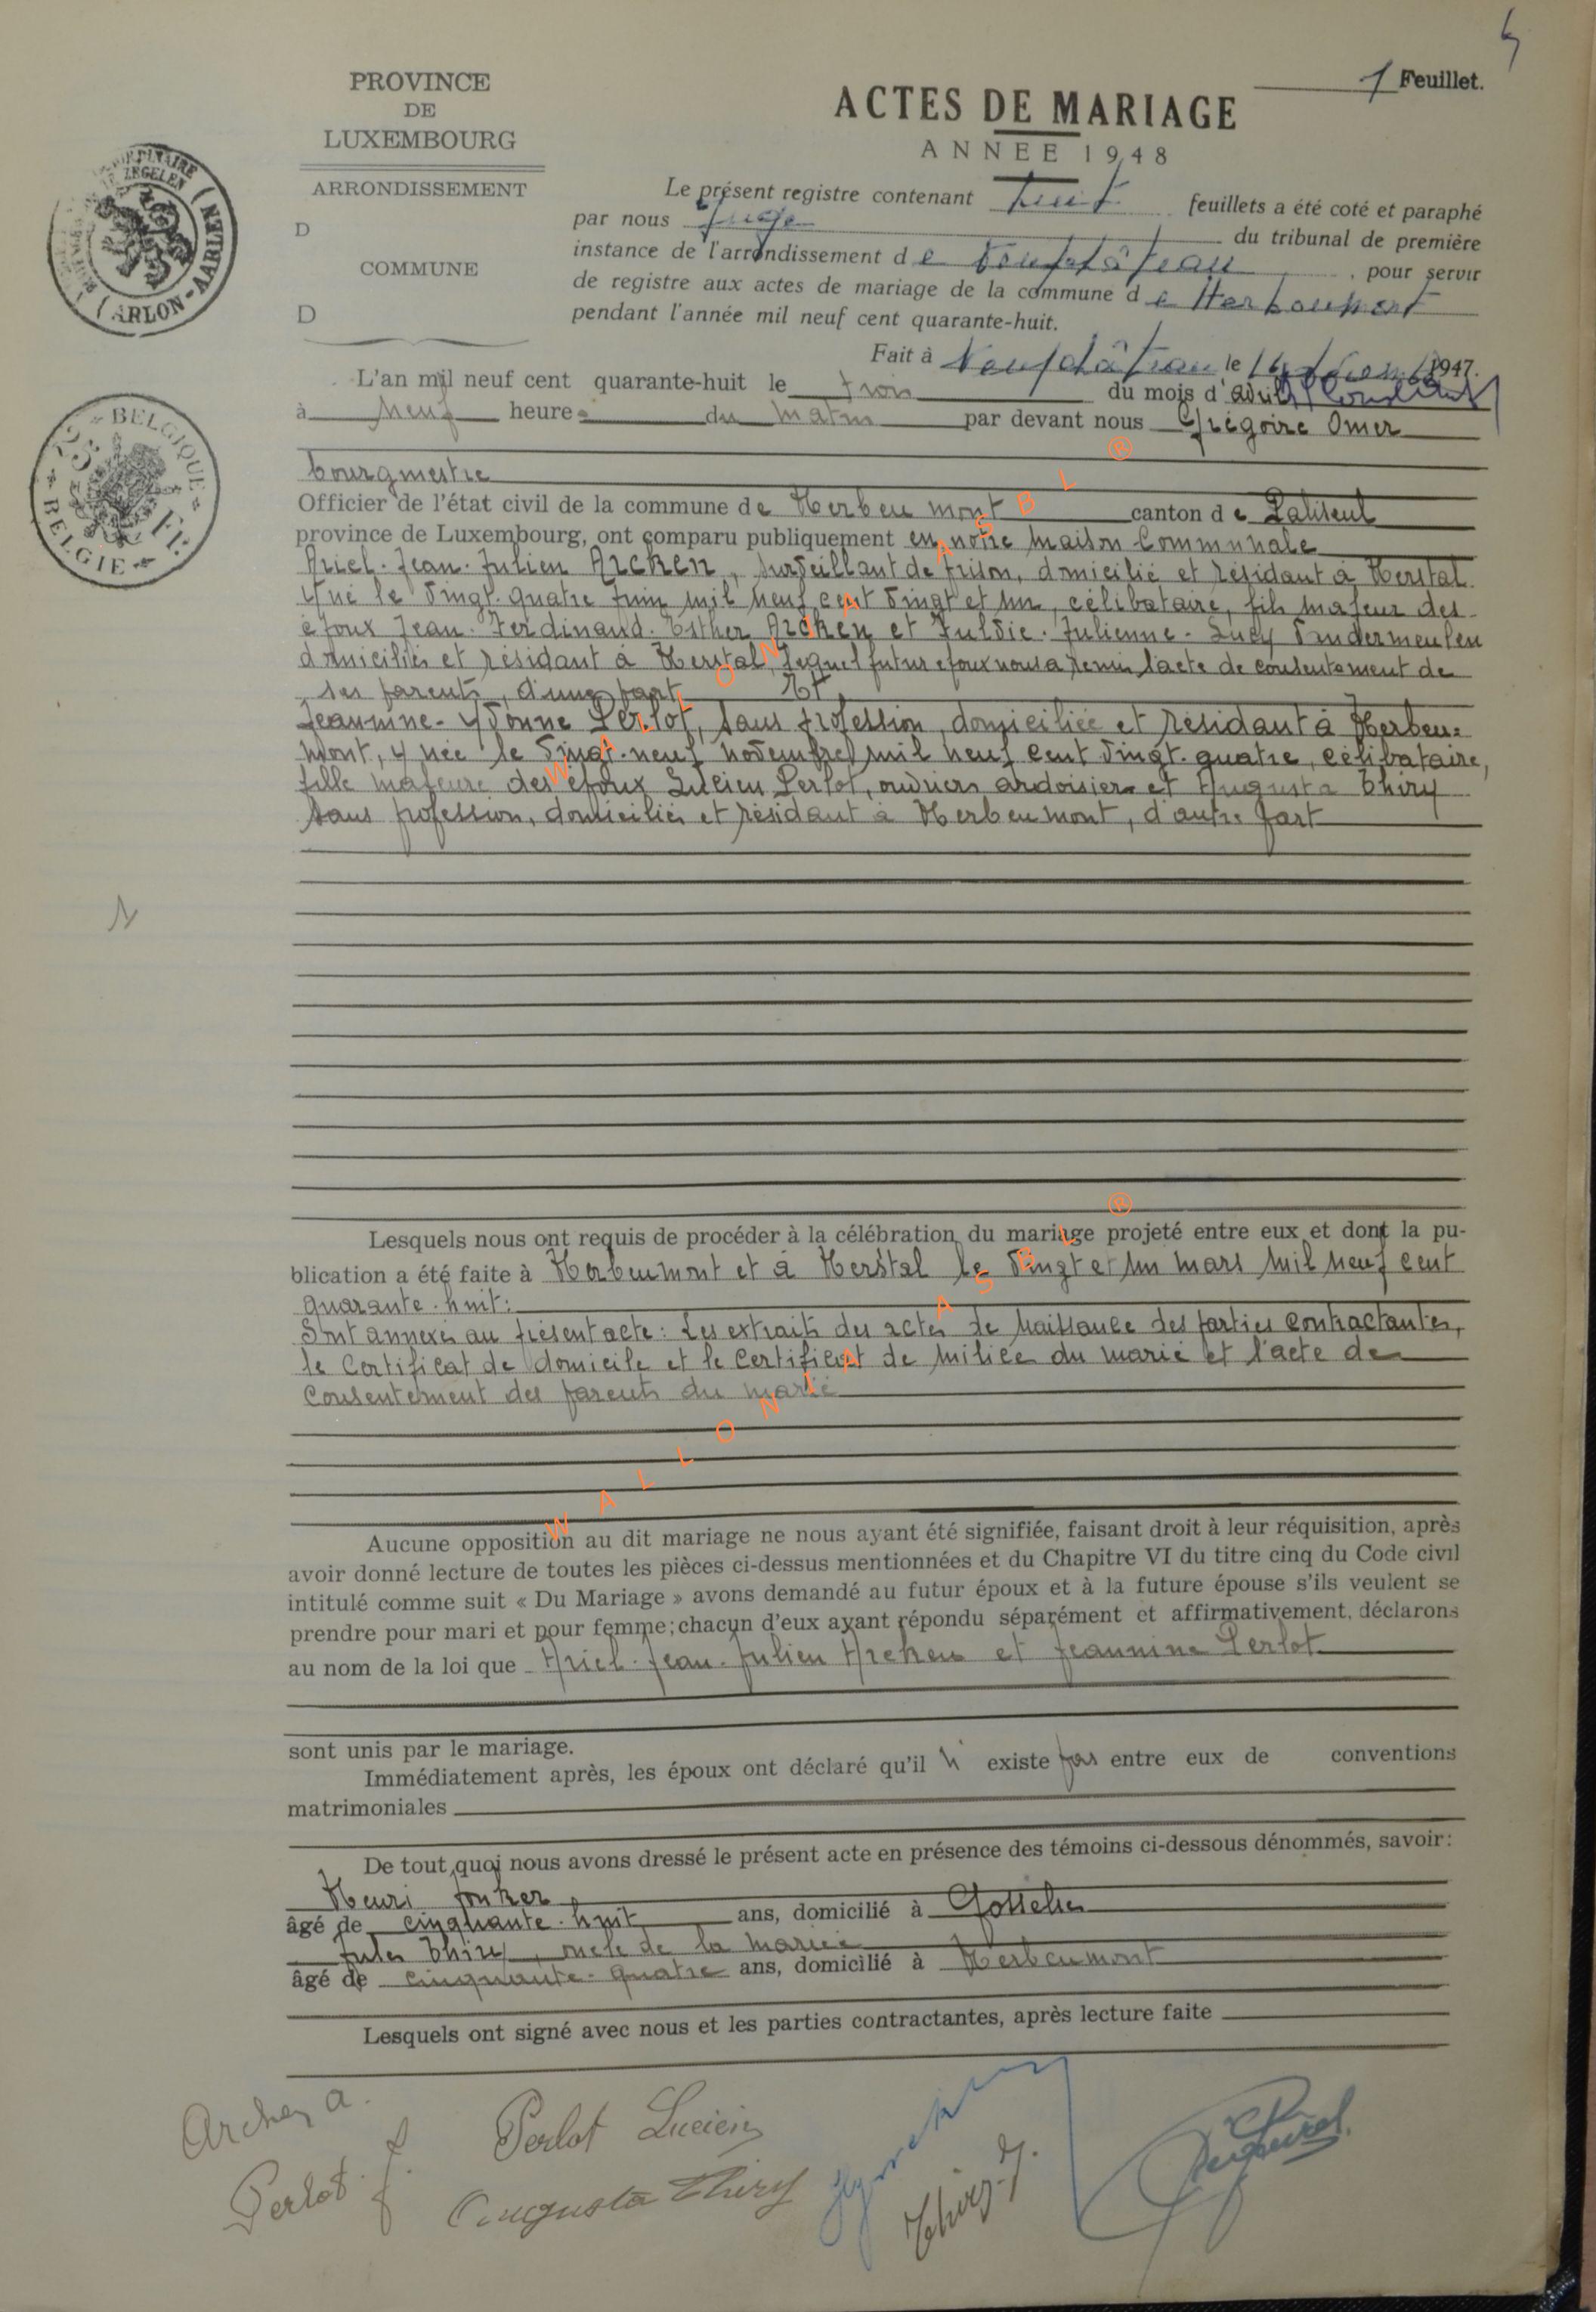 1 Feuillet.
PROVINCE
DE
LUXEMBOURG
ACTES DE MARIAGE
ANNEE 1948
ARRONDISSEMENT
D
COMMUNE
D
Le présent registre contenant huit feuillets a été coté et paraphé
par nous Juge du tribunal de première
instance de l'arrondissement de Neufchâteau, pour servir
de registre aux actes de mariage de la commune de Herbeumont
pendant l'année mil neuf cent quarante-huit.
Fait à Neufchâteau le 1947.
L'an mil neuf cent quarante-huit le trois du mois d'avril
à neuf heures du matin par devant nous Grégoire Omer
bourgmestre
Officier de l'état civil de la commune de Herbeumont canton de Paliseul
province de Luxembourg, ont comparu publiquement en notre maison Communale
Ariel-Jean-Julien Archen, surveillant de prison, domicilié et résidant à Herstal
y né le vingt-quatre juin mil neuf cent vingt et un, célibataire, fils majeur des
époux Jean-Ferdinand-Esther Archen et Fulvie-Julienne-Lucy Vandermeulen
domiciliés et résidant à Herstal, lequel futur époux nous a remis l'acte de consentement de
ses parents, d'une part Et,
Jeannine-Yvonne Perlot, sans profession, domiciliée et résidant à Herbeu=
mont, y née le vingt-neuf novembre mil neuf cent vingt-quatre, célibataire,
fille majeure des époux Lucien Perlot, ouvrier ardoisier et Augusta Thiry
sans profession, domiciliés et résidant à Herbeumont, d'autre part
Lesquels nous ont requis de procéder à la célébration du mariage projeté entre eux et dont la pu-
blication a été faite à Herbeumont et à Herstal le vingt et un mars mil neuf cent
quarante-huit:
Sont annexés au présent acte: Les extraits des actes de naissance des parties contractantes,
le Certificat de domicile et le Certificat de milice du marié et l'acte de
Consentement des parents du marié
Aucune opposition au dit mariage ne nous ayant été signifiée, faisant droit à leur réquisition, après
avoir donné lecture de toutes les pièces ci-dessus mentionnées et du Chapitre VI du titre cinq du Code civil
intitulé comme suit « Du Mariage » avons demandé au futur époux et à la future épouse s'ils veulent se
prendre pour mari et pour femme; chacun d'eux ayant répondu séparément et affirmativement, déclarons
au nom de la loi que Ariel-Jean-Julien Archen et Jeannine Perlot
sont unis par le mariage.
Immédiatement après, les époux ont déclaré qu'il n' existe pas entre eux de conventions
matrimoniales
De tout quoi nous avons dressé le présent acte en présence des témoins ci-dessous dénommés, savoir:
Henri Jonker
âgé de cinquante-huit ans, domicilié à Gosselies
Jules Thiry, oncle de la mariée
âgé de cinquante-quatre ans, domicilié à Herbeumont
Lesquels ont signé avec nous et les parties contractantes, après lecture faite
Archen a.
Perlot J.
Perlot Lucien
Augusta Thiry
Thiry J.
ARLON-AARLEN
BELGIQUE
25 Fr.
BELGIE
WALLONIA ASBL ®
WALLONIA ASBL ®